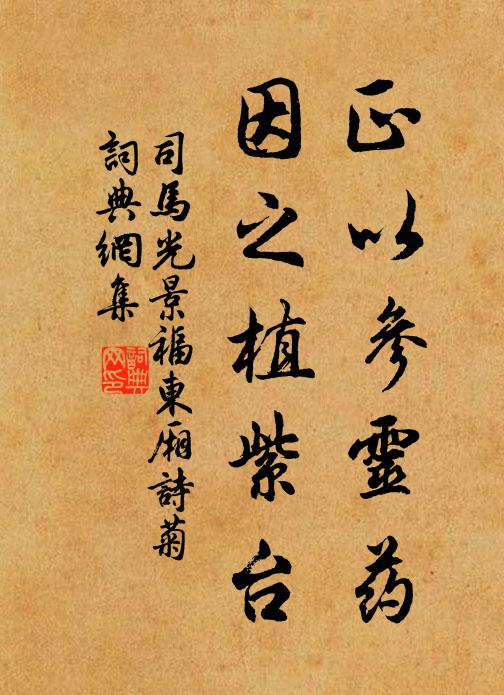 正以參靈药
因之植紫台
司馬光景福東厢詩菊
詞典網集
詞典网印